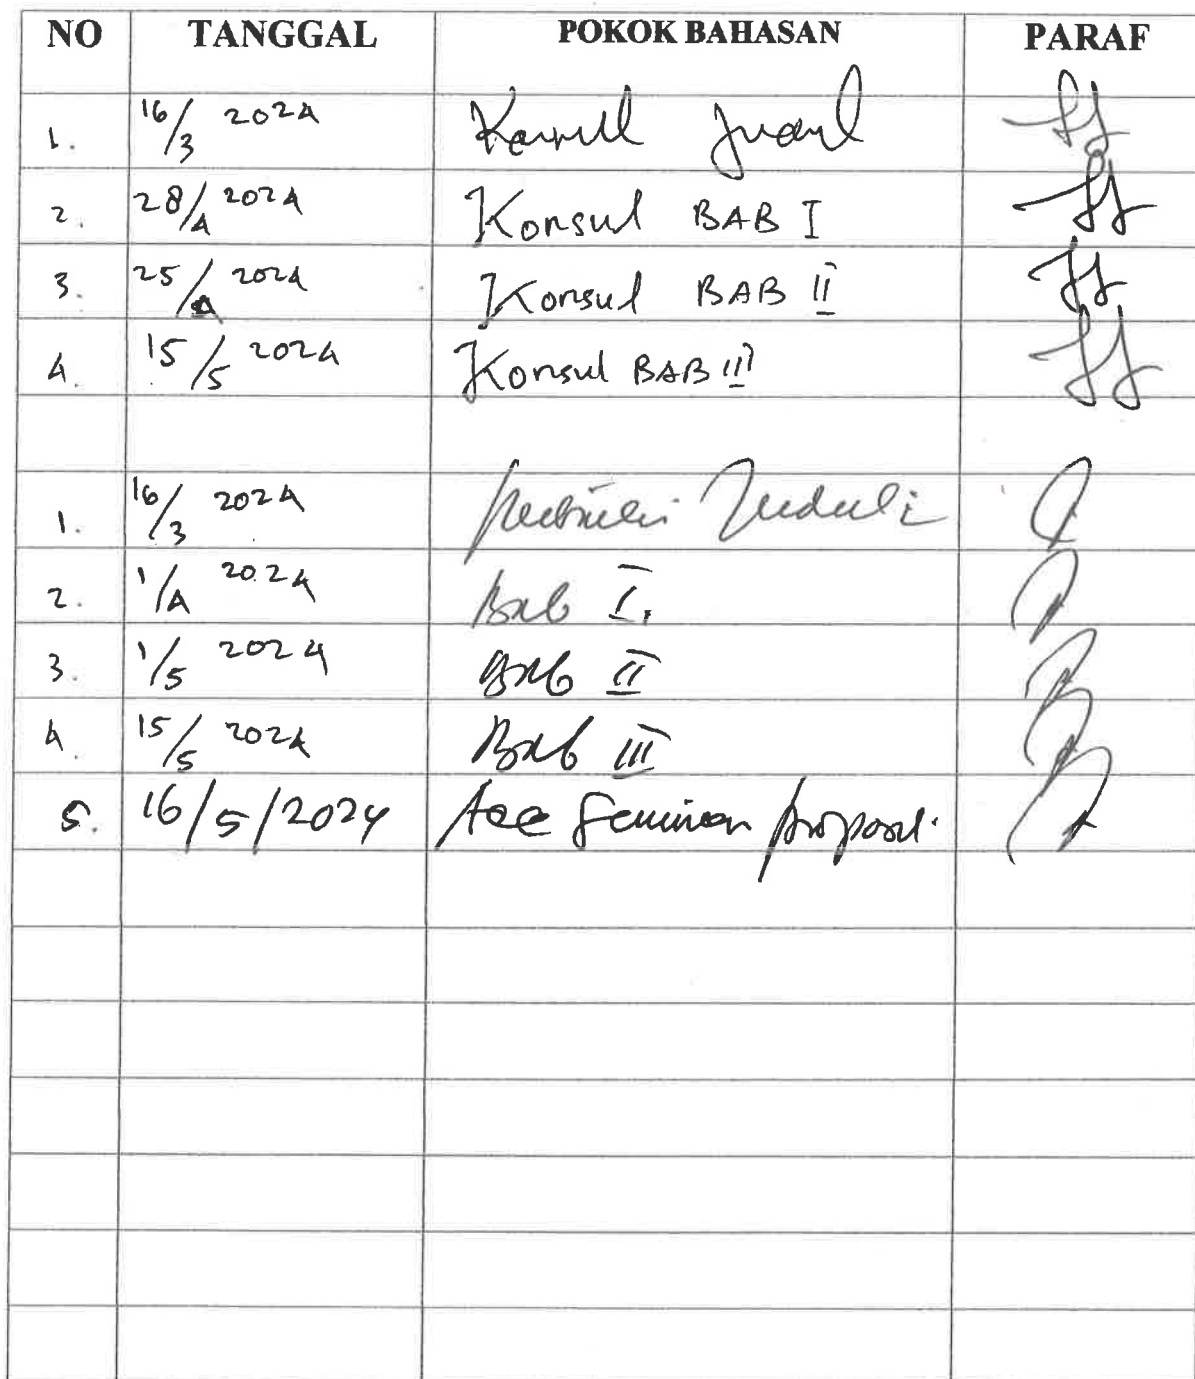 NO TANGGAL POKOK BAHASAN PARAF
1. 16/3 2024 Konsul Judul
2. 28/4 2024 Konsul BAB I
3. 25/4 2024 Konsul BAB II
4. 15/5 2024 Konsul BAB III
1. 16/3 2024
2. 1/4 2024 Bab I.
3. 1/5 2024 Bab II
4. 15/5 2024 Bab III
5. 16/5/2024 Acc Seminar proposal.